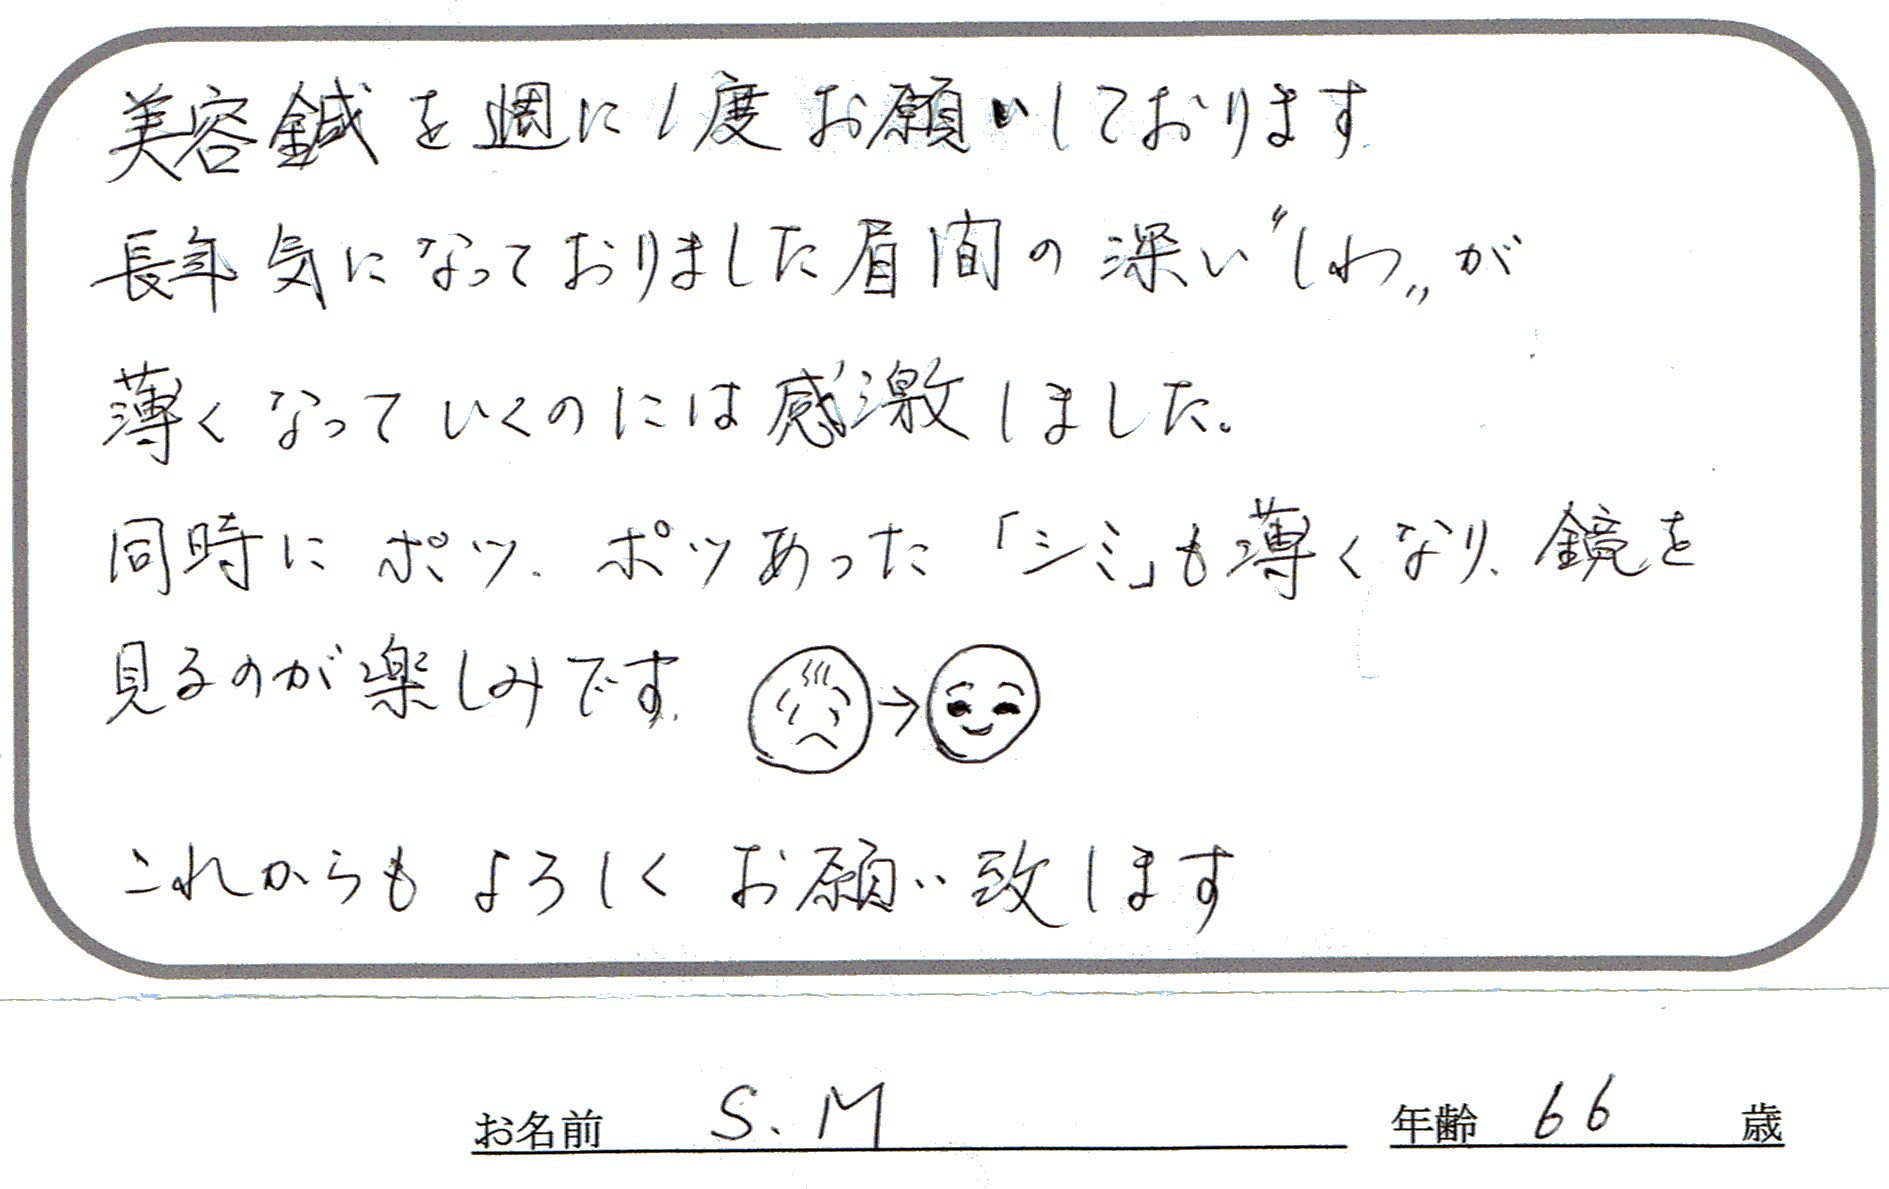 美容鍼を週に1度お願いしております
長年気になっておりました眉間の深い〝しわ〟が
薄くなっていくのには感激しました。
同時にポツ、ポツあった「シミ」も薄くなり、鏡を
見るのが楽しみです。
→
これからもよろしくお願い致します
お名前 S.M 年齢 66 歳